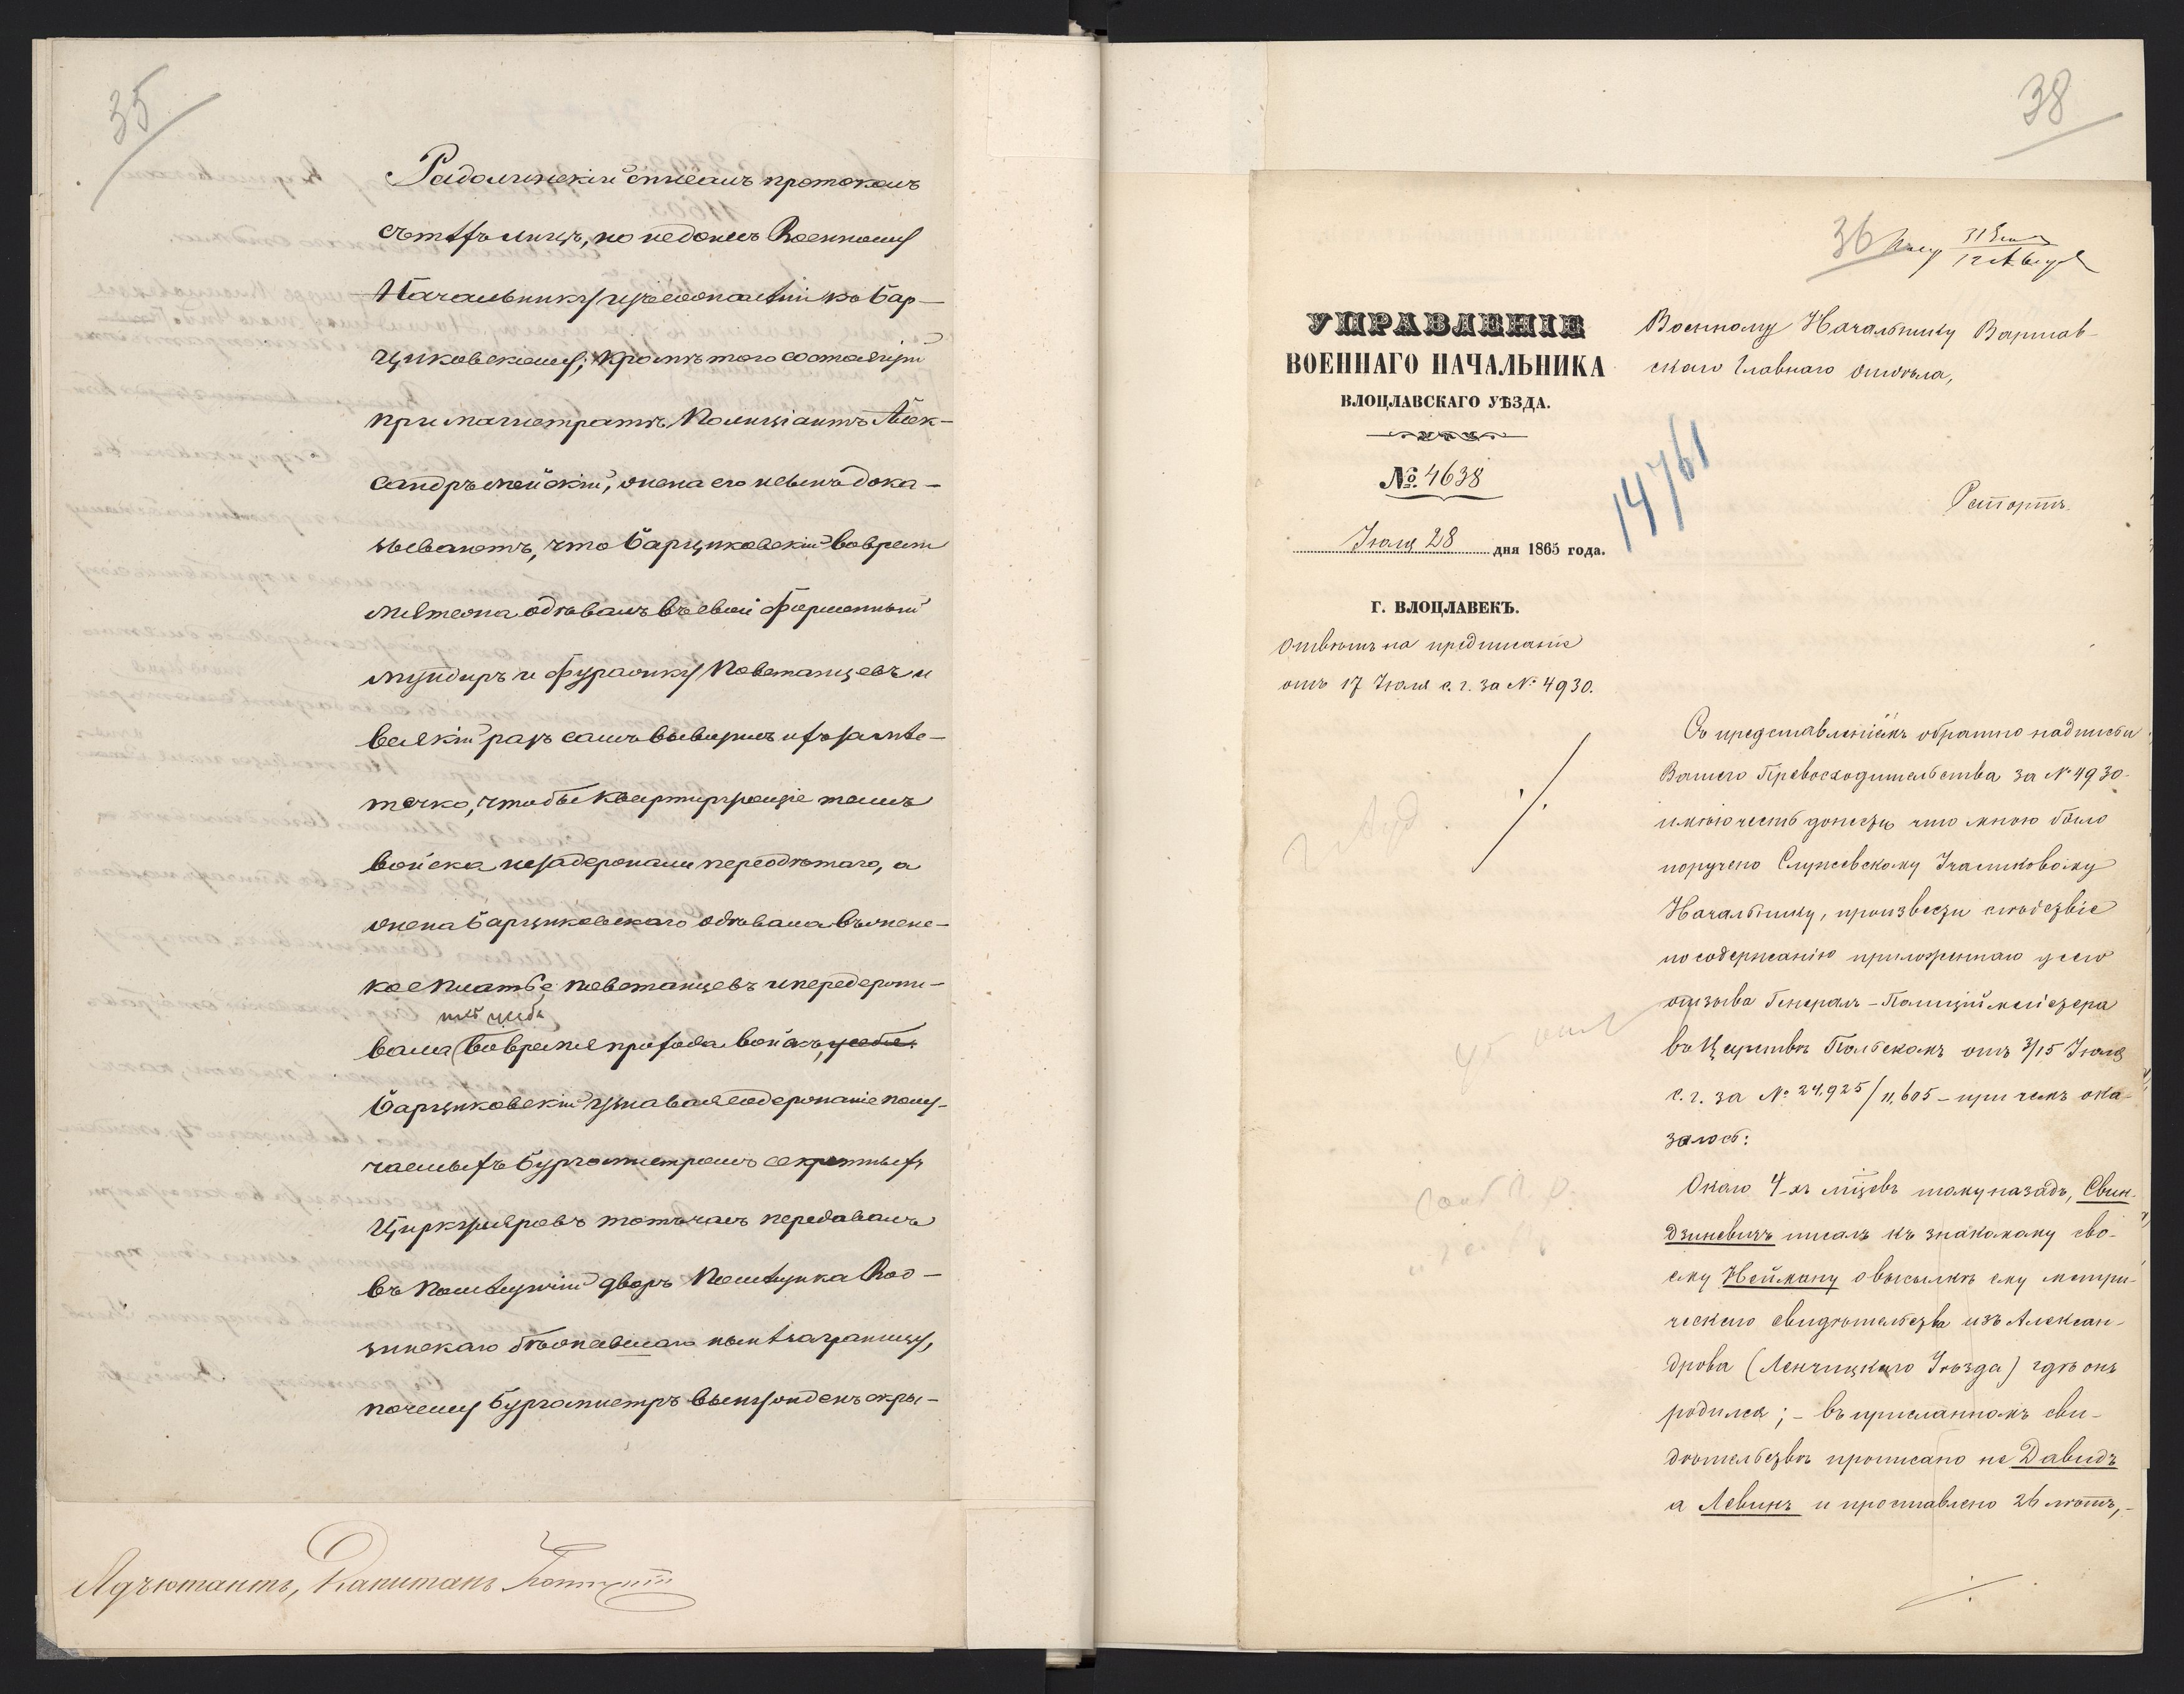 35
Радолинскій списалъ протоколъ
съ тѣхъ лицъ, но не донесъ Военному
Начальнику изъ симпатіи къ Бар-
циковскому; кромѣ того состоящій
при магистратѣ Полиціантъ Алек-
сандръ скій, жена его и сынъ дока-
зываютъ, что Барциковскій во врем
мятежа одѣвалъ въ свой форменный
мундиръ и фуражку повстанцевъ и
всякій разъ самъ вывозилъ ихъ за мѣс-
течко, чтобы квартирующіе тамъ
войска не задержали переодѣтаго, а
жена Барциковскаго одѣвала въ женс-
кое платье повстанцевъ и передержи-
вала (во время прохода войскъ, у себя.
Барциковскій узнавая содержаніе полу-
чаемыхъ Бургомистромъ секретныхъ
Циркуляровъ тотъ часъ передавалъ
въ помѣщичій дворъ помѣщика Род-
зинскаго бѣжавшаго нынѣ за границу,
почему Бургомистръ вынужденъ скры-
Адъютантъ, Капитанъ
38
36
31 Іюля
12 Август
УПРАВЛЕНІЕ
ВОЕННАГО НАЧАЛЬНИКА
ВЛОЦЛАВСКАГО УѢЗДА.
№ 4638
Іюля 28 дня 1865 года.
Г. ВЛОЦЛАВЕКЪ.
Отвѣтъ на предписаніе
отъ 17 Іюля с. г. за № 4930.
14761
Военному Начальнику Варшав-
скаго Главнаго отдѣла,
Рапортъ.
Съ представленіемъ обратно надписи
Вашего Превосходительства за № 4930
имѣю честь донести что мною было
поручено Служевскому Участковому
Начальнику, произвести слѣдствіе
по содержанію приложеннаго у сего
отзыва Генералъ-Полиціймейстера
въ Царствѣ Польскомъ отъ 3/15 Іюля
с. г. за № 24,925/11,605 – при чемъ ока-
залось:
Около 4-хъ мѣсцевъ тому назадъ, Свин-
дзиневичъ писалъ къ знакомому сво-
ему Нейману о высылкѣ ему метри-
ческаго свидѣтельства изъ Алексан-
дрова (Ленчицкаго Уѣзда) гдѣ онъ
родился; – въ присланномъ сви-
дѣтельствѣ прописано не Давидъ
а Левинъ и проставлено 26 лѣтъ, –